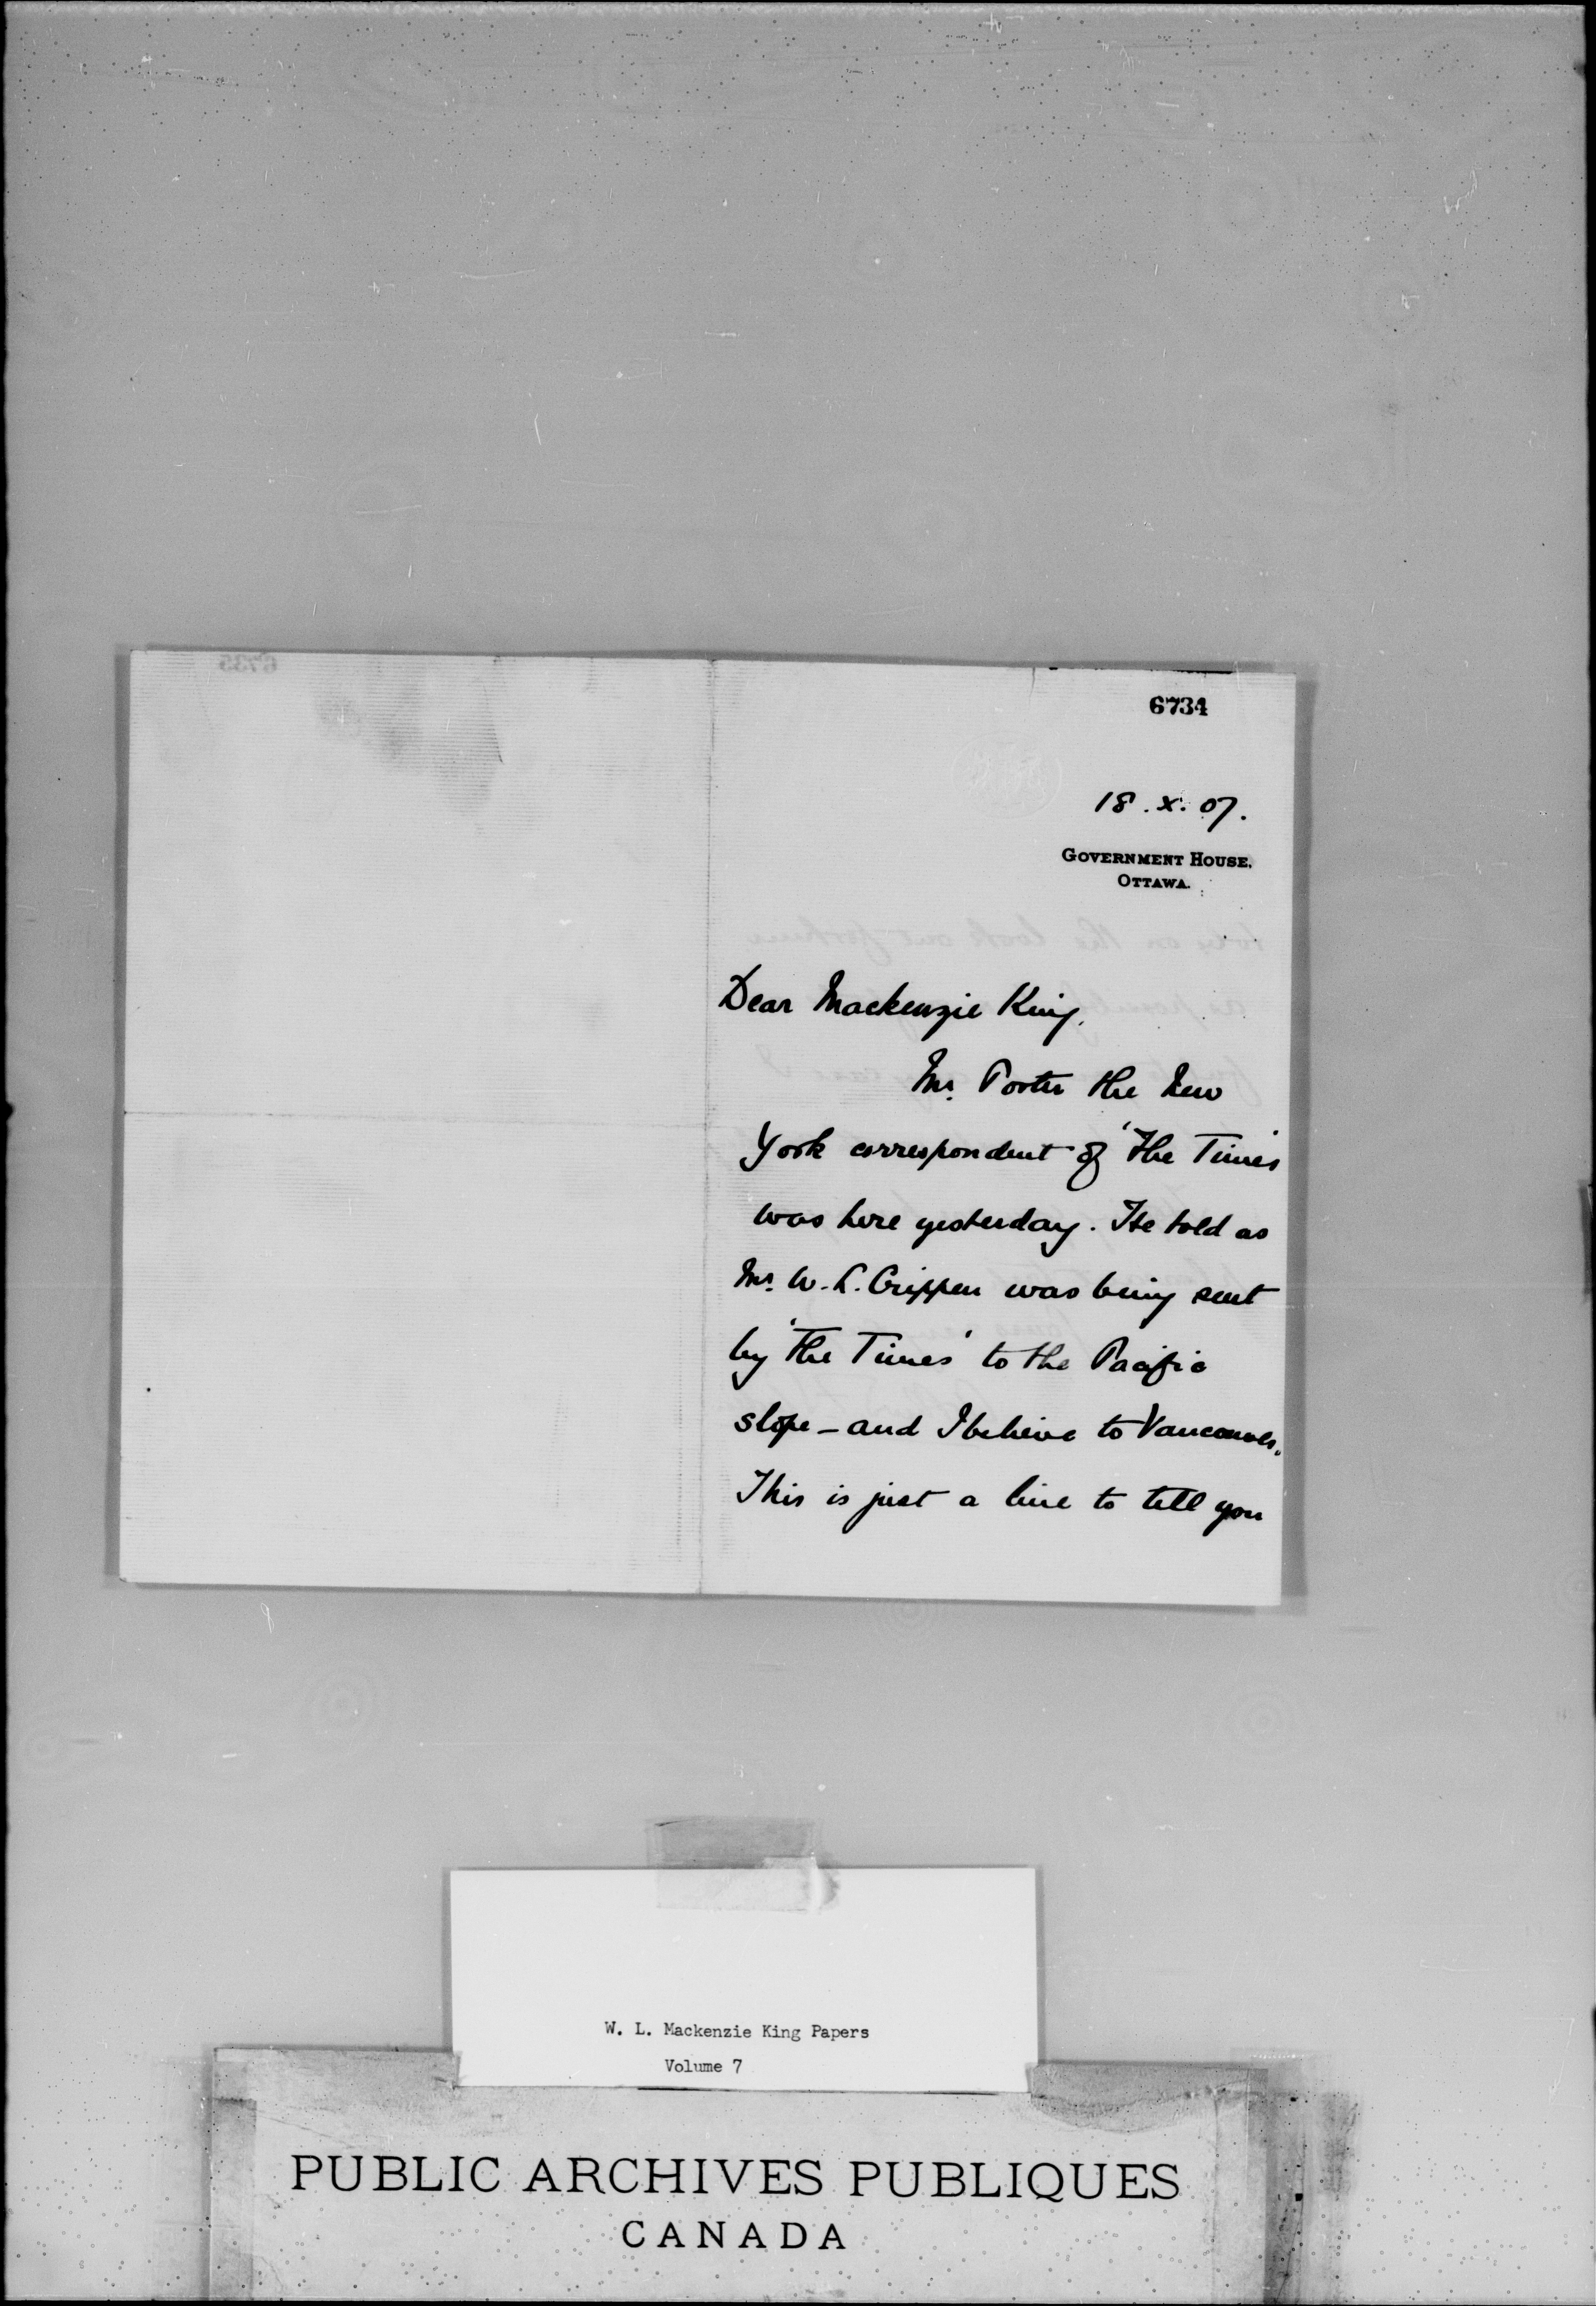 6734
18.X.07.
GOVERNMENT HOUSE,
OTTAWA.
Dear Mackenzie King,
Mr. Porter the New
York correspondent of 'The Times'
was here yesterday. He told as
Mr. W. L. Grippen was being sent
by 'The Times' to the Pacific
slope - and I believe to Vancouver.
This is just a line to tell you
W. L. Mackenzie King Papers
Volume 7
PUBLIC ARCHIVES PUBLIQUES
CANADA